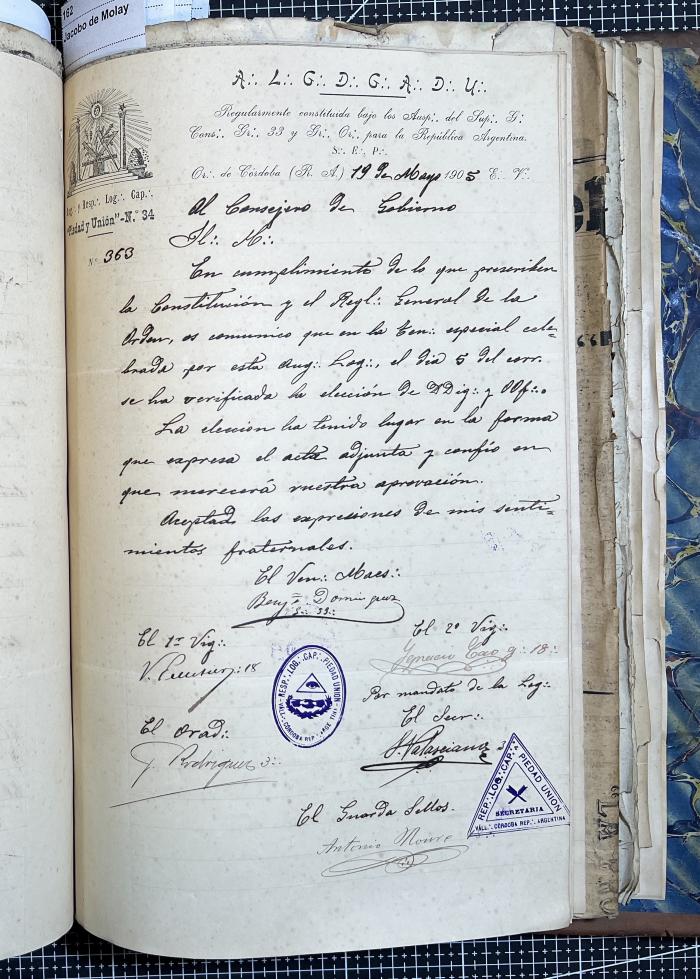 162
Jacobo de Molay
A∴ L∴ G∴ D∴ G∴ A∴ D∴ U∴
Regularmente constituida bajo los Ausp∴ del Sup∴ G∴
Cons∴ Gr∴ 33 y Gr∴ Or∴ para la República Argentina.
S∴ E∴ P∴
Or∴ de Córdoba (R. A.) 19 de Mayo 1905 E∴ V∴
y Resp∴ Log∴ Cap∴
"Piedad y Unión"-N.º 34
Nº 363
Al Consejero de Gobierno
Il∴ H∴
En cumplimiento de lo que prescriben
la Constitución y el Regl∴ General de la
Orden, os comunico que en la ten∴ especial cele-
brada por esta Aug∴ Log∴, el dia 5 del corr.
se ha verificada la elección de DDig∴ y OOf∴
La eleccion ha tenido lugar en la forma
que expresa el acta adjunta y confío en
que merecerá vuestra aprovación.
Aceptad las expresiones de mis senti-
mientos fraternales.
El Ven∴ Maes∴
Benj. Dominguez
33∴
El 1er Vig∴
El 2º Vig∴
18
Ignacio 18∴
RESP∴ LOG∴ CAP∴ PIEDAD UNION
VALL∴ CÓRDOBA REP∴ ARGENTINA
Por mandato de la Log∴
El Secr∴
El Orad∴
J. Rodriguez 3∴
REP∴ LOG∴ CAP∴ PIEDAD UNION
SECRETARIA
VALL∴ CÓRDOBA REP∴ ARGENTINA
El Guarda Sellos.
Antonio Moure